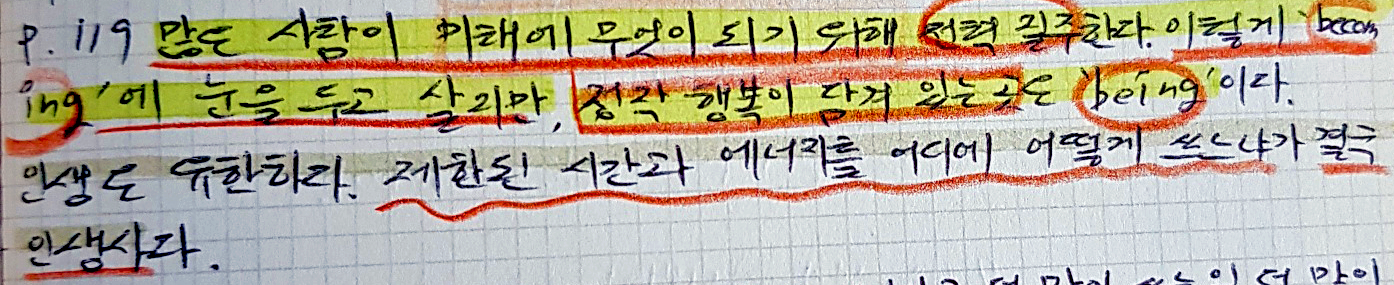 p. 119 많은 사람이 미래에 무엇이 되기 위해 전력 질주한다. 이렇게 'becom
ing'에 눈을 두고 살지만, 정작 행복이 담겨 있는 곳은 'being'이다.
인생은 유한하다. 제한된 시간과 에너지를 어디에 어떻게 쓰느냐가 결국
인생사다.
더 많이 쓰는 이 더 많이